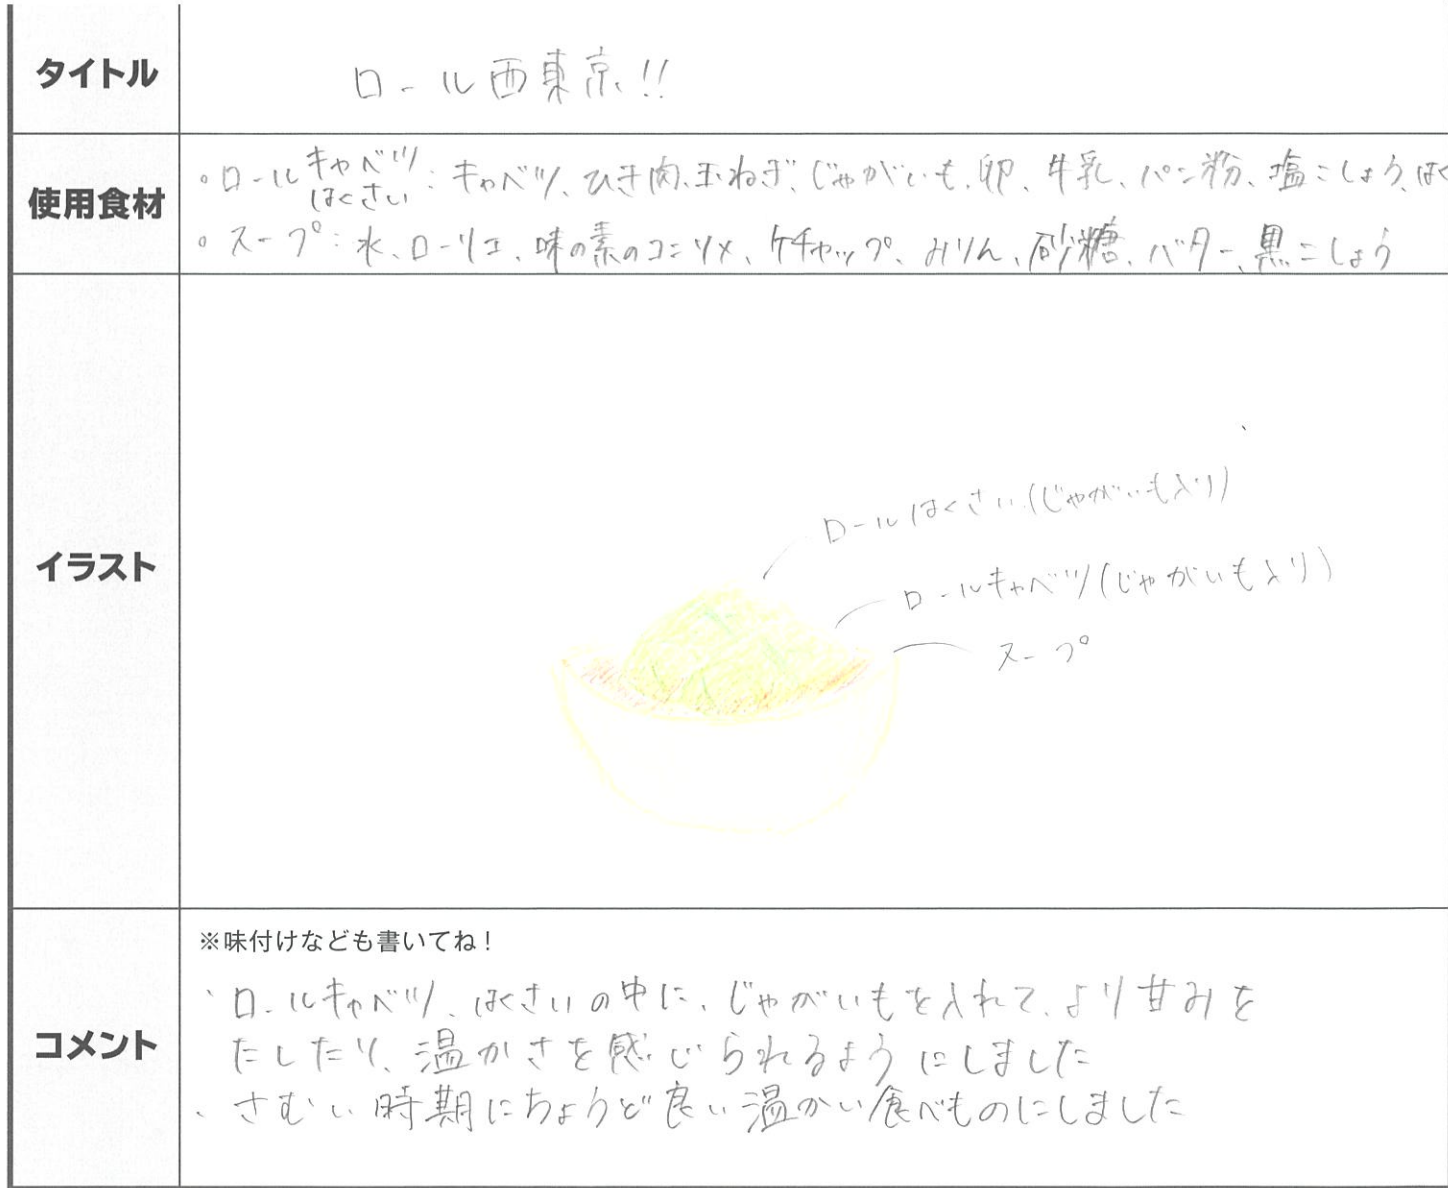 タイトル
ロール西東京!!
使用食材
。ロールキャベツ はくさい：キャベツ、ひき肉、玉ねぎ、じゃがいも、卵、牛乳、パン粉、塩こしょう、はく
。スープ：水、ローリエ、味の素のコンソメ、ケチャップ、みりん、砂糖、バター、黒こしょう
イラスト
ロールはくさい(じゃがいも入り)
ロールキャベツ(じゃがいも入り)
スープ
コメント
※味付けなども書いてね！
・ロールキャベツ、はくさいの中に、じゃがいもを入れて、より甘みを
たしたり、温かさを感じられるようにしました
・さむい時期にちょうど良い温かい食べものにしました